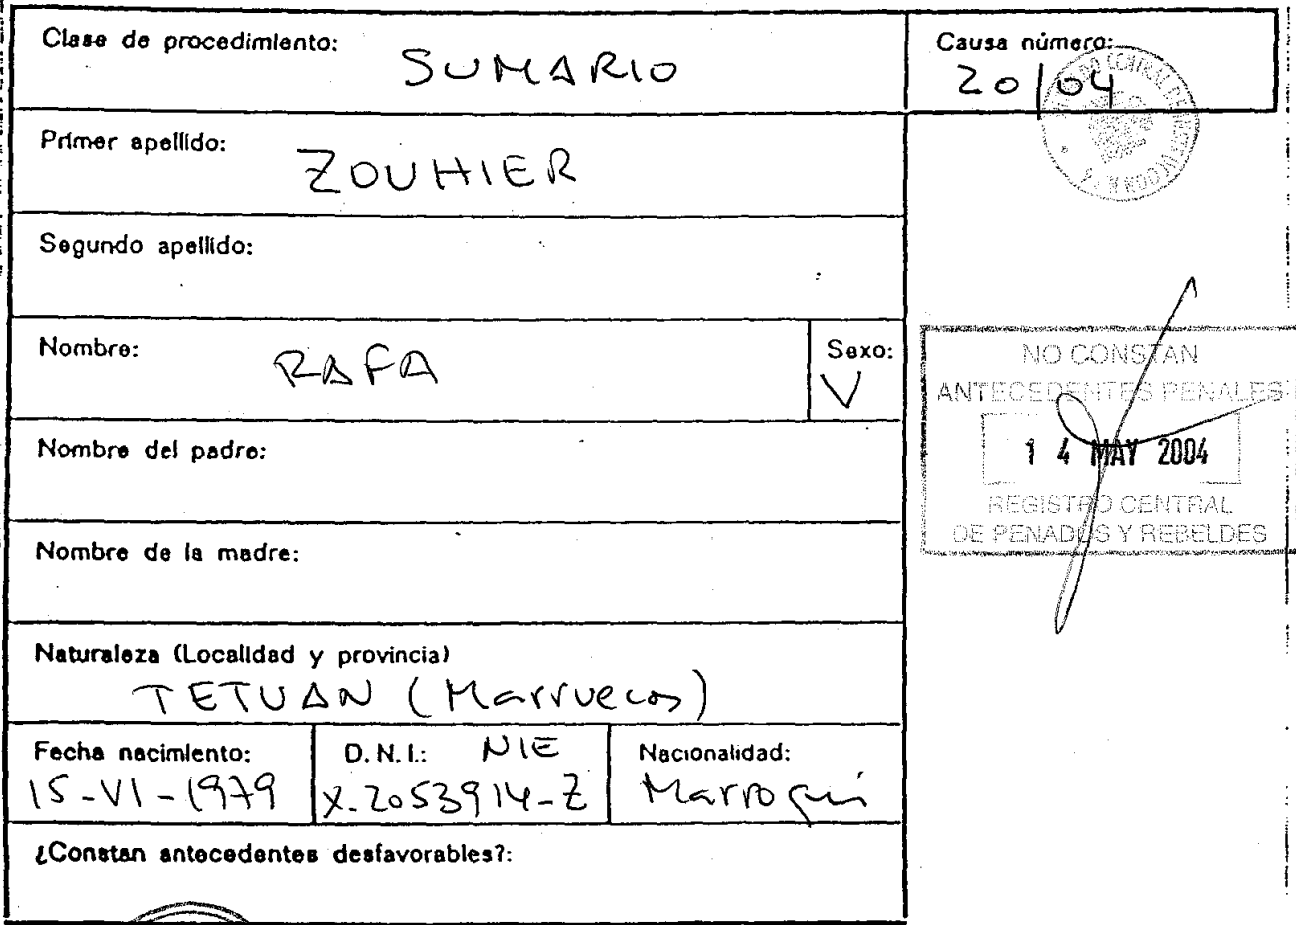 Clase de procedimiento: SUMARIO
Causa número:
20/04
Primer apellido: ZOUHIER
Segundo apellido:
Nombre: RAFA
Sexo:
V
NO CONSTAN
ANTECEDENTES PENALES
14 MAY 2004
REGISTRO CENTRAL
DE PENADOS Y REBELDES
Nombre del padre:
Nombre de la madre:
Naturaleza (Localidad y provincia)
TETUAN (Marruecos)
Fecha nacimiento:
15-VI-1979
D.N.I.: NIE
X-2053914-Z
Nacionalidad:
Marroquí
¿Constan antecedentes desfavorables?: